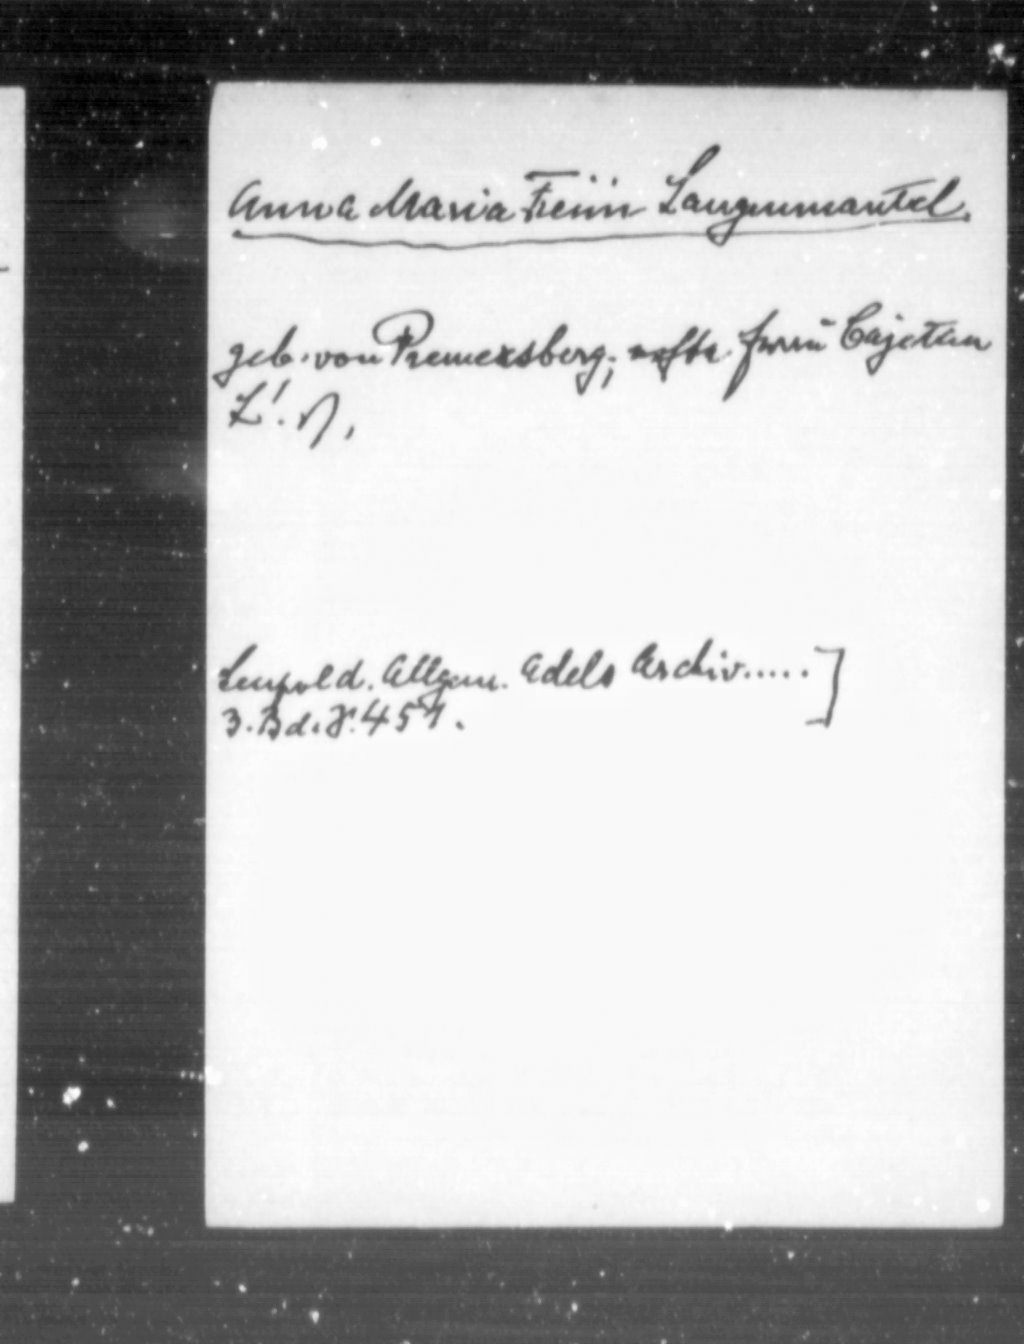 Anna Maria Freiin Langenmantel.
geb. von Remersberg; Cajetan
L!.
Leupold. Allgem. Adels Archiv.....]
3. Bd. S. 451.